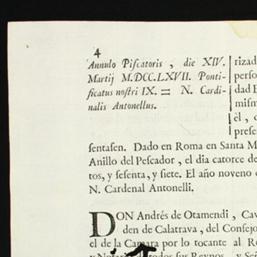 4
Annulo Piscatoris, die XIV.
Martij M.DCC.LXVII. Ponti-
ficatus nostri IX. = N. Cardi-
nalis Antonellus.
rizad
perso
dad E
mism
él, c
prese
sentasen. Dado en Roma en Santa M
Anillo del Pescador, el dia catorce de
tos, y sesenta, y siete. El año noveno d
N. Cardenal Antonelli.
DON Andrés de Otamendi, Cav
den de Calatrava, del Consejo
el de la Camara por lo tocante al R
todos sus Reynos, y Señ